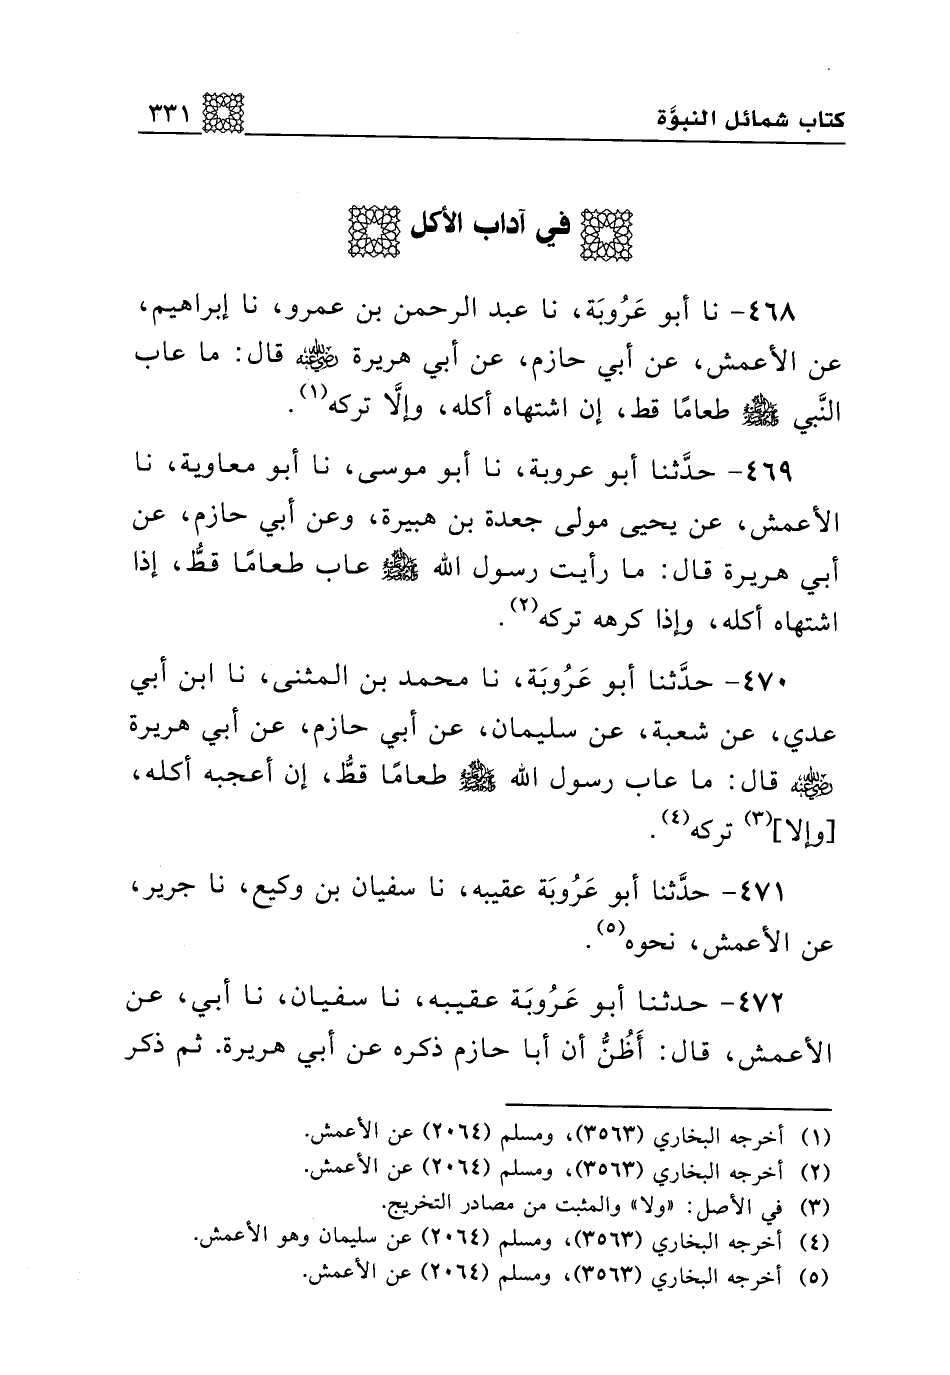 كتاب شمائل النبوَّة ٣٣١
في آداب الأكل
٤٦٨- نا أبو عَرُوبَة، نا عبد الرحمن بن عمرو، نا إبراهيم،
عن الأعمش، عن أبي حازم، عن أبي هريرة رضي الله عنه قال: ما عاب
النَّبي ﷺ طعامًا قط، إن اشتهاه أكله، وإلَّا تركه(١).
٤٦٩- حدَّثنا أبو عروبة، نا أبو موسى، نا أبو معاوية، نا
الأعمش، عن يحيى مولى جعدة بن هبيرة، وعن أبي حازم، عن
أبي هريرة قال: ما رأيت رسول الله ﷺ عاب طعامًا قطُّ، إذا
اشتهاه أكله، وإذا كرهه تركه(٢).
٤٧٠- حدَّثنا أبو عَرُوبَة، نا محمد بن المثنى، نا ابن أبي
عدي، عن شعبة، عن سليمان، عن أبي حازم، عن أبي هريرة
رضي الله عنه قال: ما عاب رسول الله ﷺ طعامًا قطُّ، إن أعجبه أكله،
[وإلا](٣) تركه(٤).
٤٧١- حدَّثنا أبو عَرُوبَة عقيبه، نا سفيان بن وكيع، نا جرير،
عن الأعمش، نحوه(٥).
٤٧٢- حدثنا أبو عَرُوبَة عقيبه، نا سفيان، نا أبي، عن
الأعمش، قال: أَظُنُّ أن أبا حازم ذكره عن أبي هريرة. ثم ذكر
(١) أخرجه البخاري (٣٥٦٣)، ومسلم (٢٠٦٤) عن الأعمش.
(٢) أخرجه البخاري (٣٥٦٣)، ومسلم (٢٠٦٤) عن الأعمش.
(٣) في الأصل: «ولا» والمثبت من مصادر التخريج.
(٤) أخرجه البخاري (٣٥٦٣)، ومسلم (٢٠٦٤) عن سليمان وهو الأعمش.
(٥) أخرجه البخاري (٣٥٦٣)، ومسلم (٢٠٦٤) عن الأعمش.